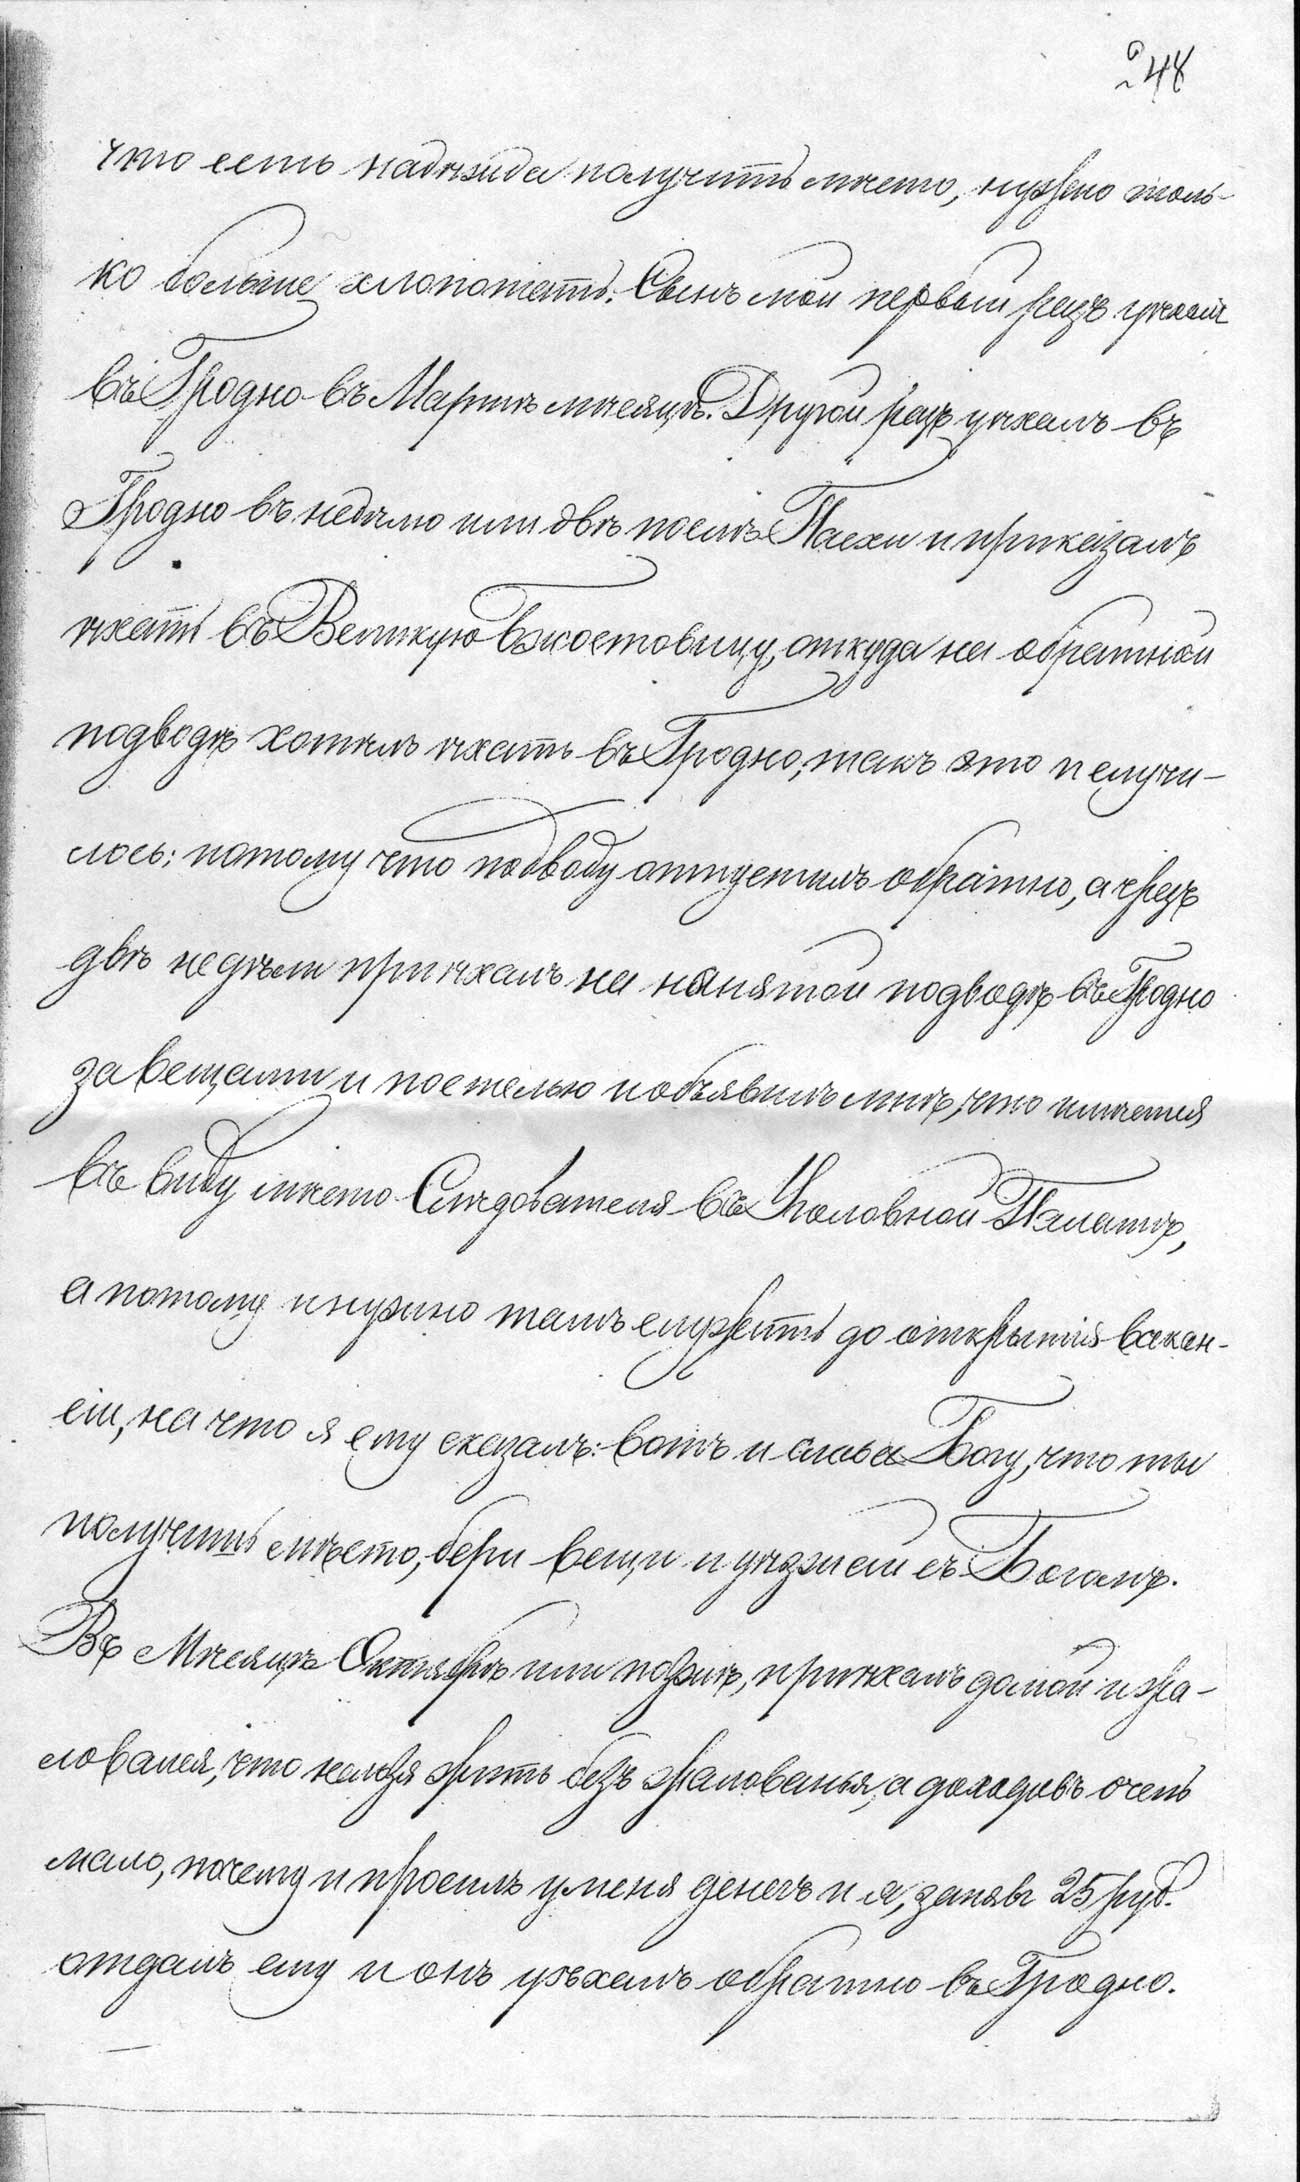 248
что есть надѣжда получить мѣсто, нужно толь-
ко больше хлопотать. Сынъ мой первый разъ уѣхалъ
въ Гродно въ Мартѣ мѣсяцѣ. Другой разъ уѣхалъ въ
Гродно въ недѣлю или двѣ послѣ Пасхи и приказалъ
ѣхать въ Великую Бжостовицу, откуда на обратной
подводѣ хотѣлъ ѣхать въ Гродно, такъ это и случи-
лось: потому что подводу отпустилъ обратно, а чрезъ
двѣ недѣли приѣхалъ на нанятой подводѣ въ Гродно
за вещами и постелью и объявилъ мнѣ, что имѣется
въ виду мѣсто Слѣдователя въ Уголовной Палатѣ,
а потому и нужно тамъ служить до открытія вакан-
сіи, на что я ему сказалъ: вотъ и слава Богу, что ты
получишь мѣсто, бери вещи и уѣзжай съ Богомъ.
Въ Мѣсяцѣ Октябрѣ или позжѣ, приѣхалъ домой и жа-
ловался, что нельзя жить безъ жалованья, а доходовъ очень
мало, почему и просилъ у меня денегъ и я, занявъ 25 руб.
отдалъ ему и онъ уѣхалъ обратно въ Гродно.